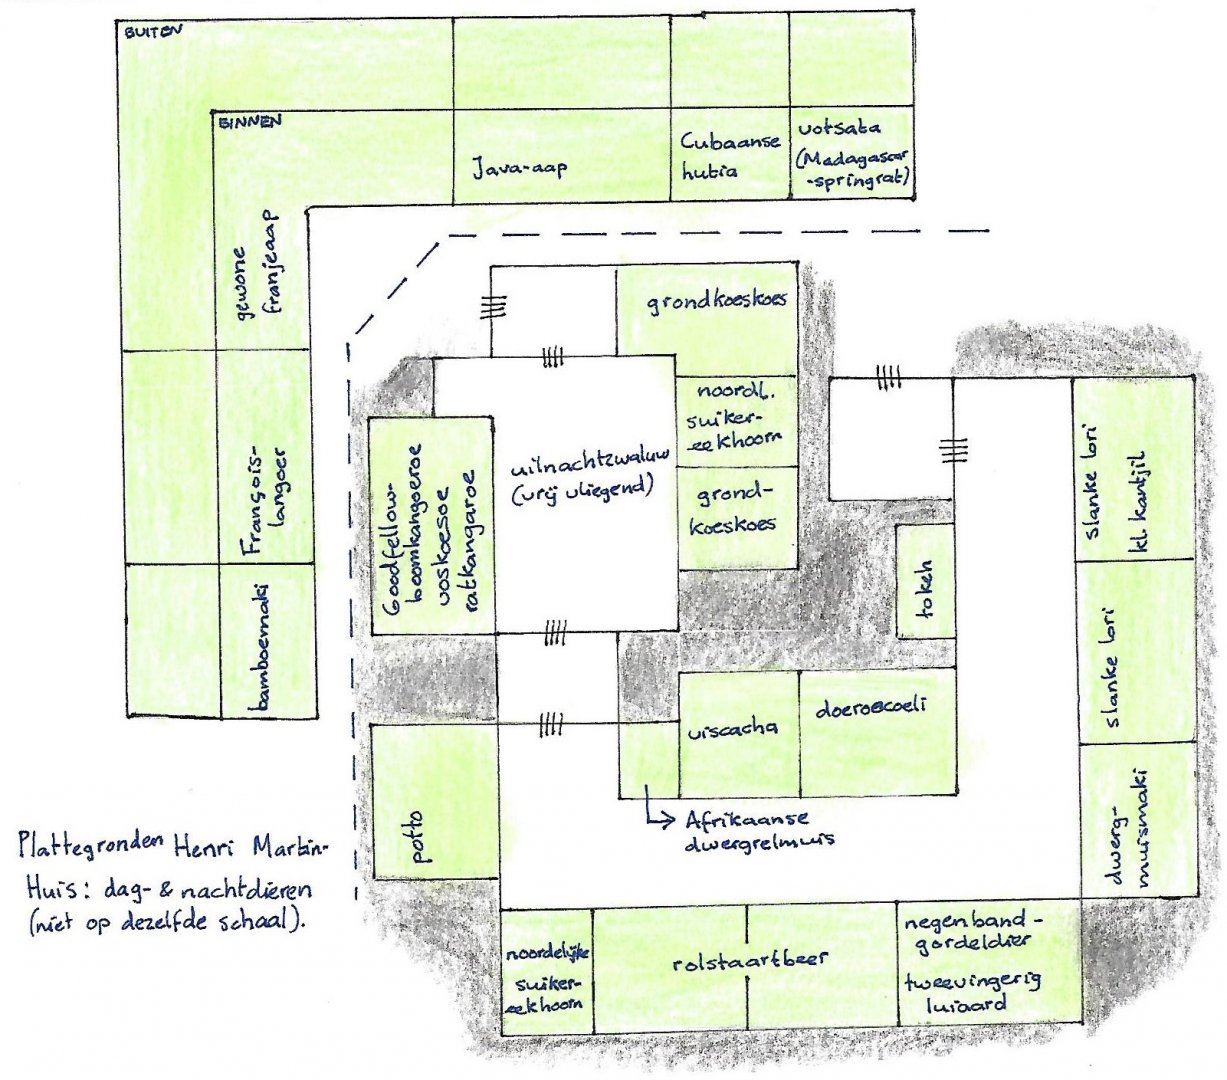 BUITEN
BINNEN
Java-aap
Cubaanse
hutia
votsata
(Madagascar
-springrat)
gewone
franjeaap
François-
langoer
bamboemaki
grondkoeskoes
noordl.
suiker-
eekhoorn
grond-
koeskoes
uilnachtzwaluw
(vrij vliegend)
Goodfellow-
boomkangoeroe
voskoesoe
ratkangaroe
tokeh
slanke lori
kl. kantjil
slanke lori
dwerg-
muismaki
viscacha
doeroecoeli
Afrikaanse
dwergrelmuis
potto
noordelijke
suiker-
eekhoorn
rolstaartbeer
negenband-
gordeldier
tweevingerig
luiaard
Plattegronden Henri Martin-
Huis: dag- & nachtdieren
(niet op dezelfde schaal).